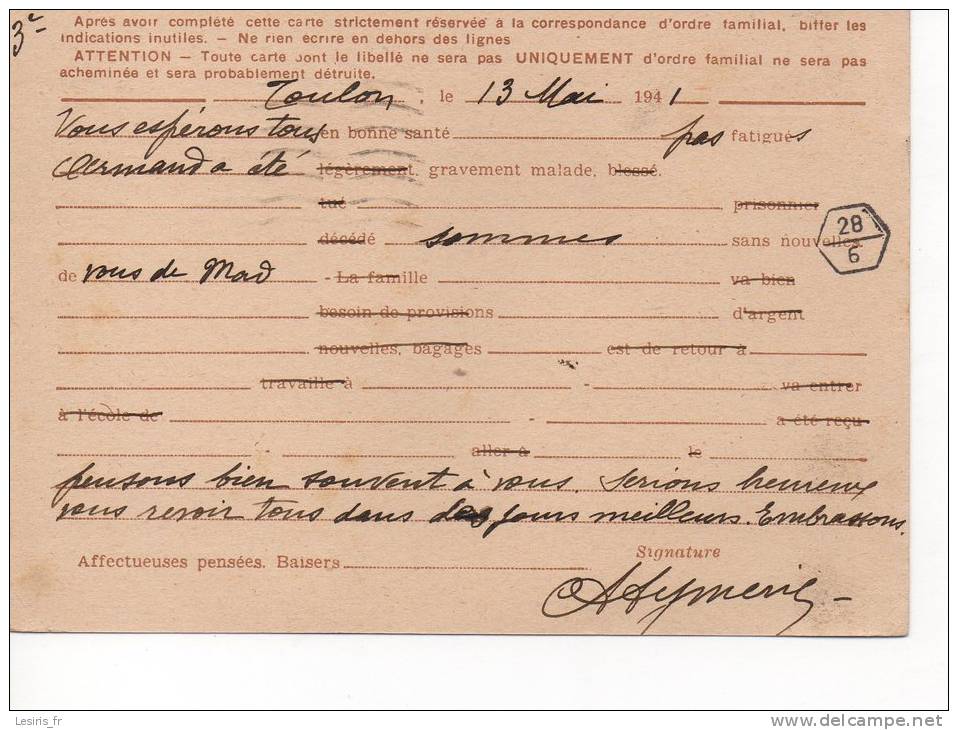 3e
Après avoir complété cette carte strictement réservée à la correspondance d'ordre familial, biffer les
indications inutiles. - Ne rien écrire en dehors des lignes
ATTENTION - Toute carte dont le libellé ne sera pas UNIQUEMENT d'ordre familial ne sera pas
acheminée et sera probablement détruite.
Toulon, le 13 Mai 1941
Vous espérons tous en bonne santé pas fatigués
Armand a été légèrement, gravement malade, blessé.
tué prisonnier
décédé sommes sans nouvelles
28
6
de vous de Mad - La famille va bien
besoin de provisions d'argent
nouvelles, bagages est de retour à
travaille à - va entrer
à l'école de - a été reçu
- - aller à le
pensons bien souvent à vous. Serions heureux
vous revoir tous dans des jours meilleurs. Embrassons.
Affectueuses pensées. Baisers
Signature
Aymeric
Lesiris_fr
delcampe.net